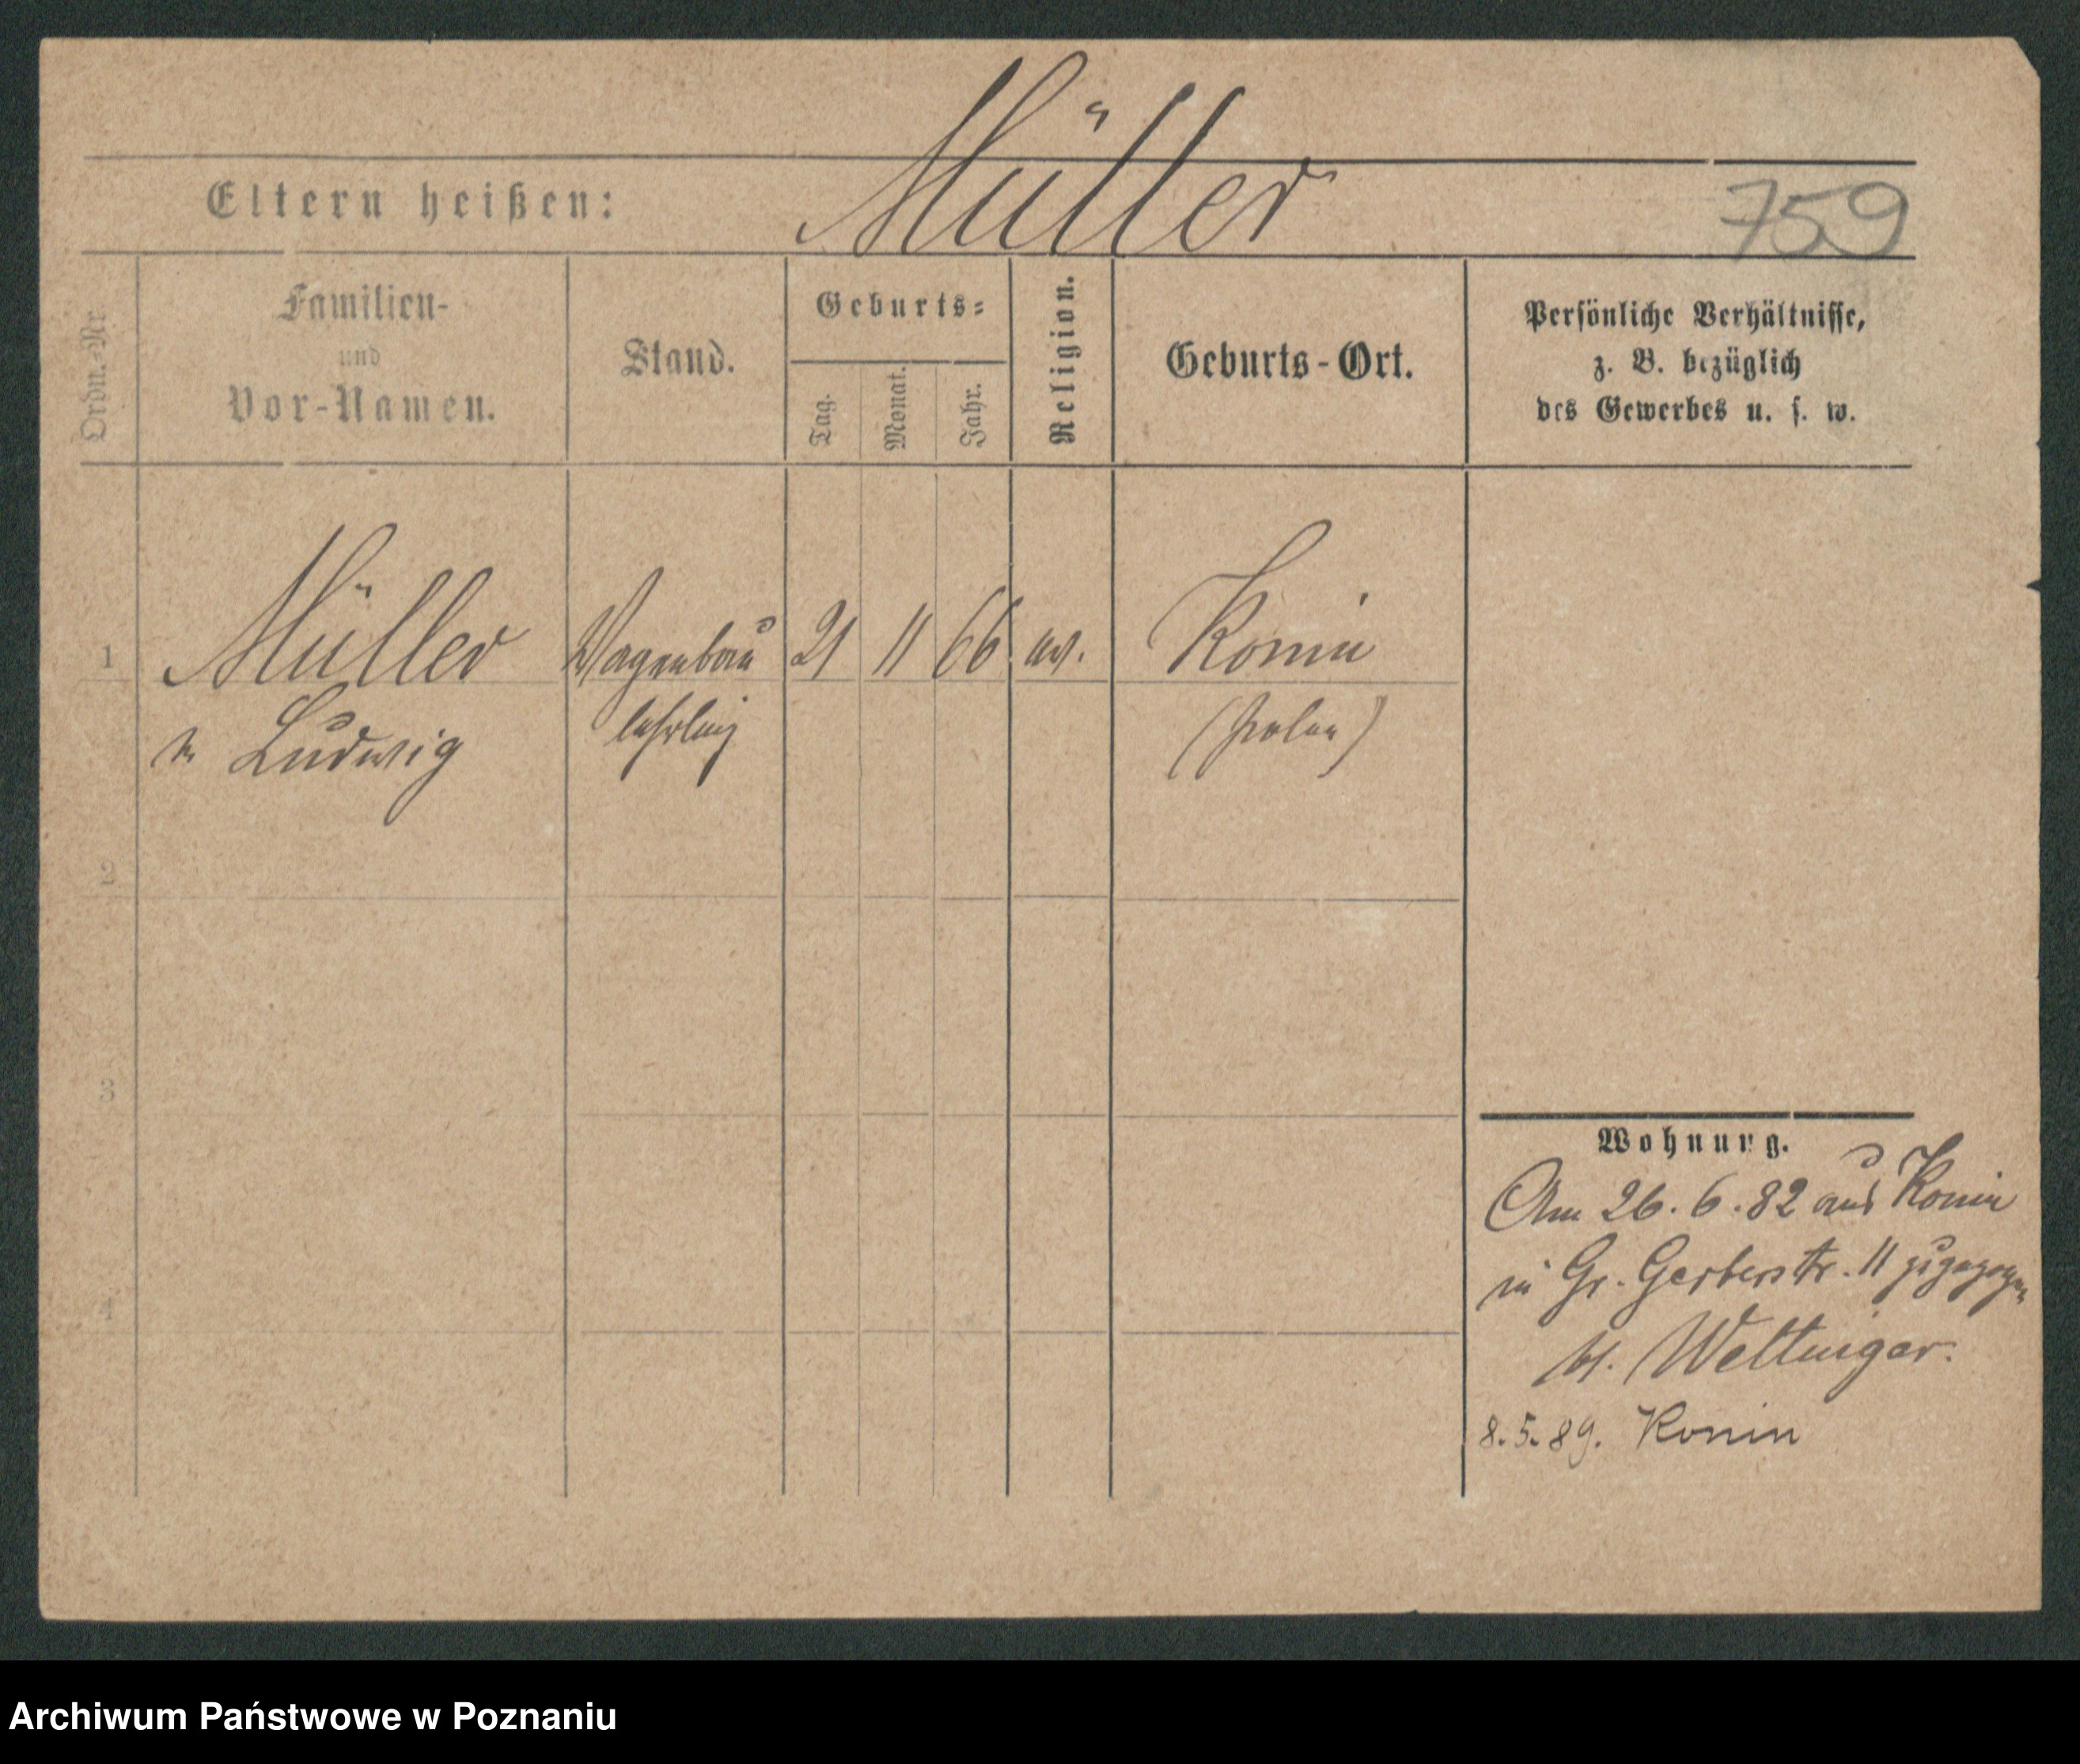 Müller
Eltern heißen:
759
Ordn.-Nr.
Familien-
und
Vor-Namen.
Stand.
Geburts-
Tag.
Monat.
Jahr.
Religion.
Geburts-Ort.
Persönliche Verhältnisse,
z. B. bezüglich
des Gewerbes u. s. w.
1
Müller
Ludwig
Wagenbau
lehrling
21
11
66
ev.
Konin
(Polen)
2
3
4
Wohnung.
Am 26.6.82 aus Konin
in Gr. Gerberstr. 11 zugezogen
8.5.89. Konin
Archiwum Państwowe w Poznaniu